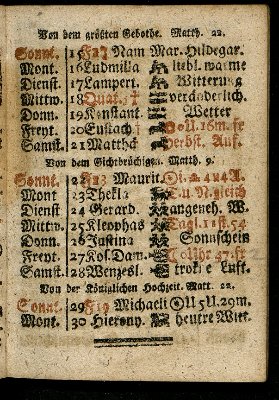 Von dem größten Gebothe. Matth. 22.
Sonnt. 15 F17 Nam Mar. Hildegar.
Mont. 16 Ludmilia liebl. warme
Dienst. 17 Lampert. Witterung
Mittw. 18 Quat. veränderlich.
Donn. 19 Konstant. Wetter
Freyt. 20 Eustach 16m. fr
Samst. 21 Matthä Herbst. Anf.
Von dem Gichtbrüchigen. Matth. 9.
Sonnt. 22 F18 Maurit.
Mont 23 Thekla T. u N. gleich
Dienst 24 Gerard. angeneh. W.
Mittw. 25 Kleophas
Donn. 26 Justina Sonnschein
Freyt. 27 Kos. Dam. 47. fr
Samst. 28 Wenzesl. trocke Luft.
Von der Königlichen Hochzeit. Matt. 22.
Sonnt. 29 F19 Michaeli U 5 U. 29m.
Mont. 30 Hierony. heutre Witt.